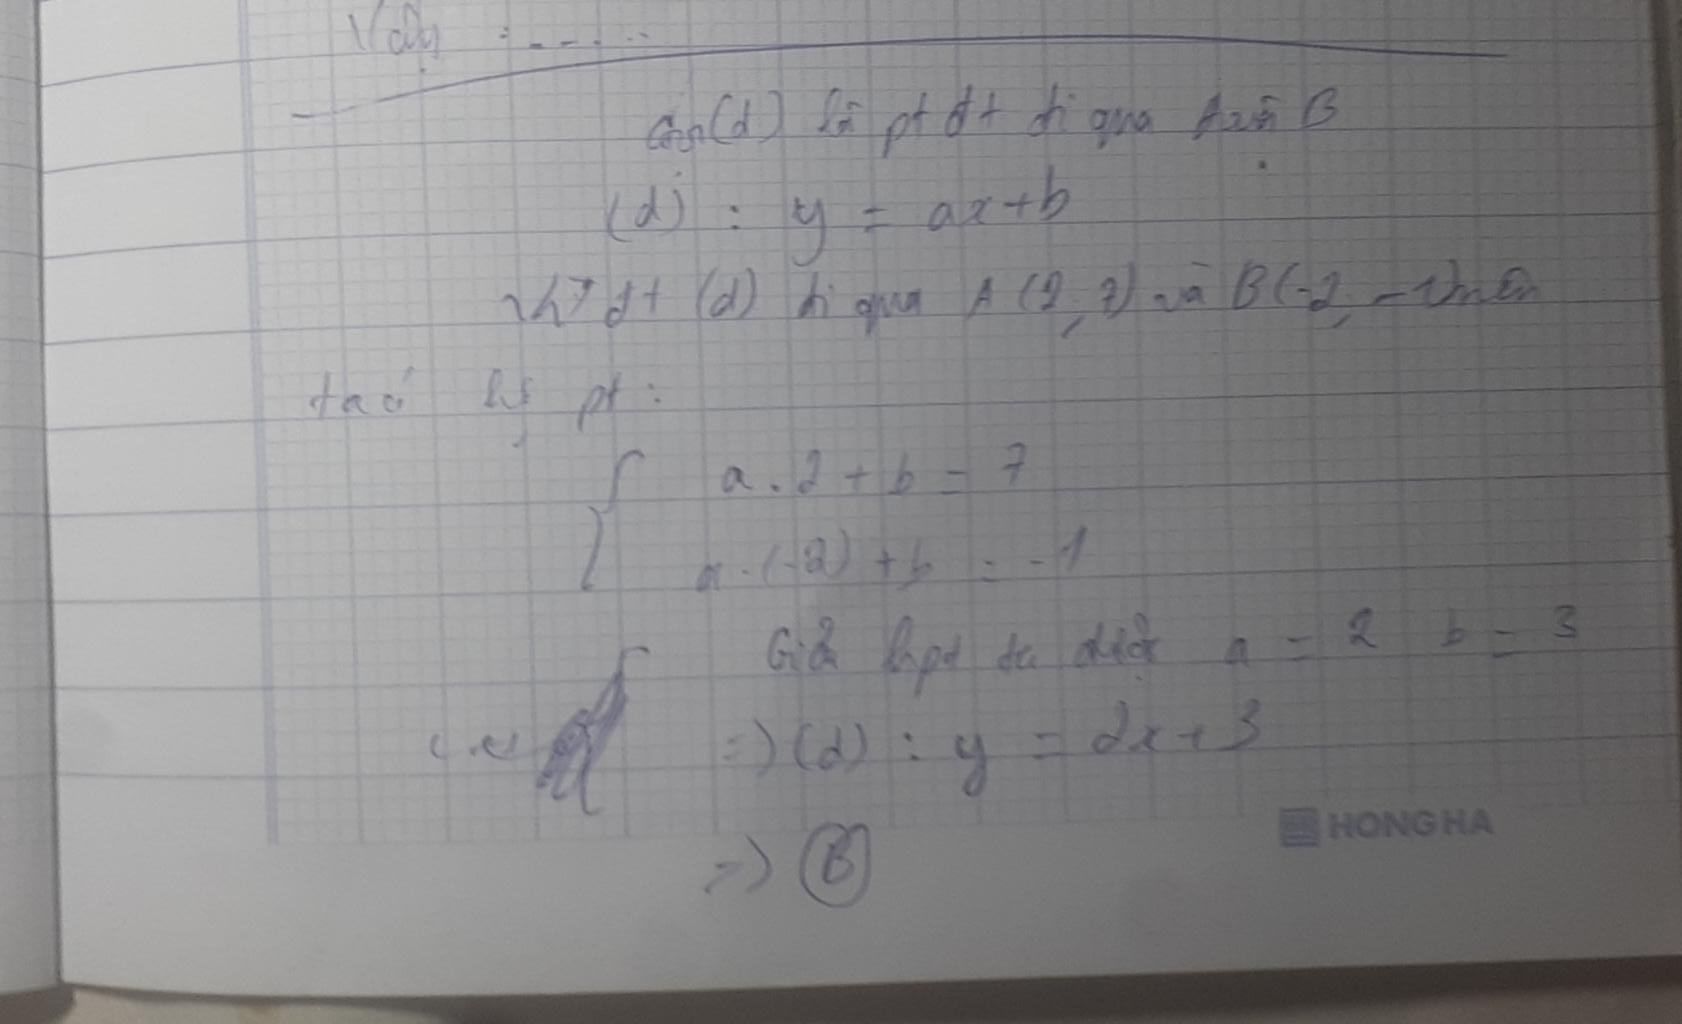 Vậy : - - . . .
Gọi (d) là pt đt đi qua A và B
(d) : y = ax + b
Vì đt (d) đi qua A (2, 7) và B (-2, -1) nên
ta có hệ pt :
a . 2 + b = 7
a . (-2) + b = -1
Giải hpt ta được a = 2 b = 3
=> (d) : y = 2x + 3
=> B
HONG HA